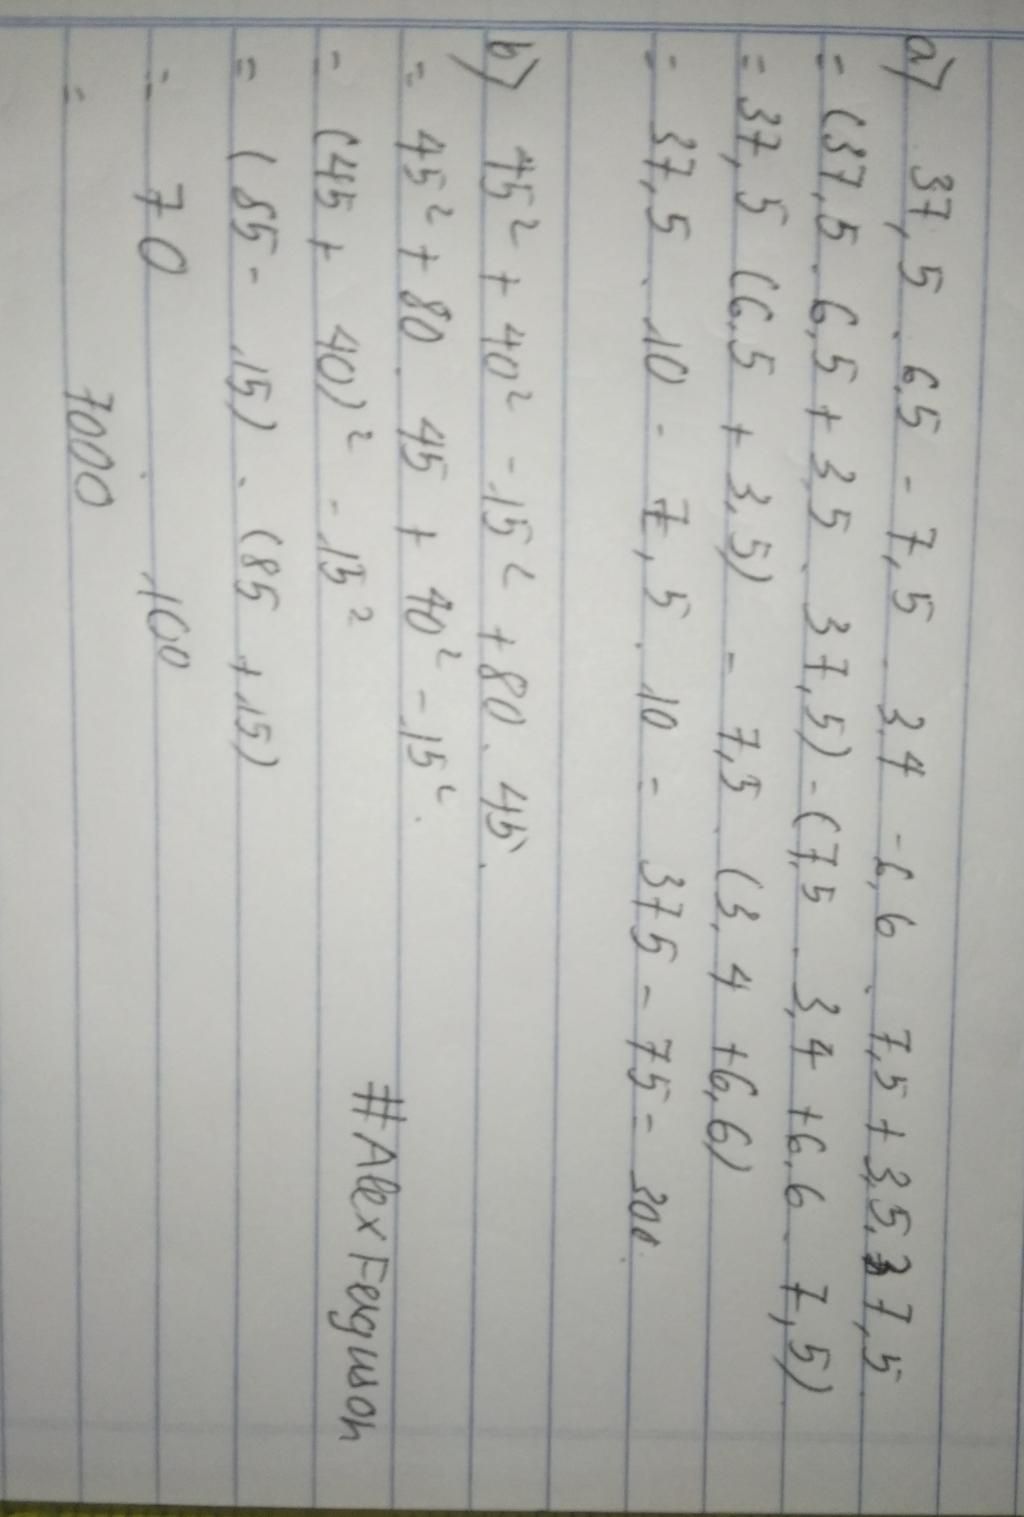 a) 37,5 . 6,5 - 7,5 . 3,4 - 6,6 . 7,5 + 3,5 . 37,5
= (37,5 . 6,5 + 3,5 . 37,5) - (7,5 . 3,4 + 6,6 . 7,5)
= 37,5 (6,5 + 3,5) - 7,5 . (3,4 + 6,6)
= 37,5 . 10 - 7,5 . 10 = 375 - 75 = 300.
b) 45² + 40² - 15² + 80 . 45.
= 45² + 80 . 45 + 40² - 15².
= (45 + 40)² - 15²
= (85 - 15) . (85 + 15)
= 70 . 100
= 7000
#AlexFerguson